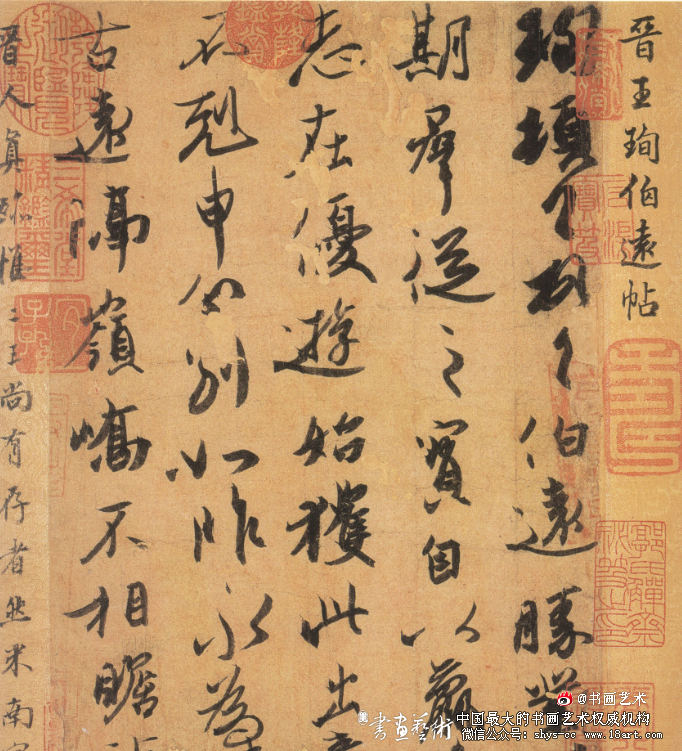 晉王珣伯遠帖
珣頓首頓首伯遠勝業
期羣從之寶自以羸
志在優遊始獲此出意
不剋申分別如昨永為
古遠隔嶺嶠不相瞻
晉人真跡惟二王尚有存者然米南宮
@书画艺术
書畫藝術
中国最大的书画艺术权威机构
微信公众号: shys-cc www.18art.com